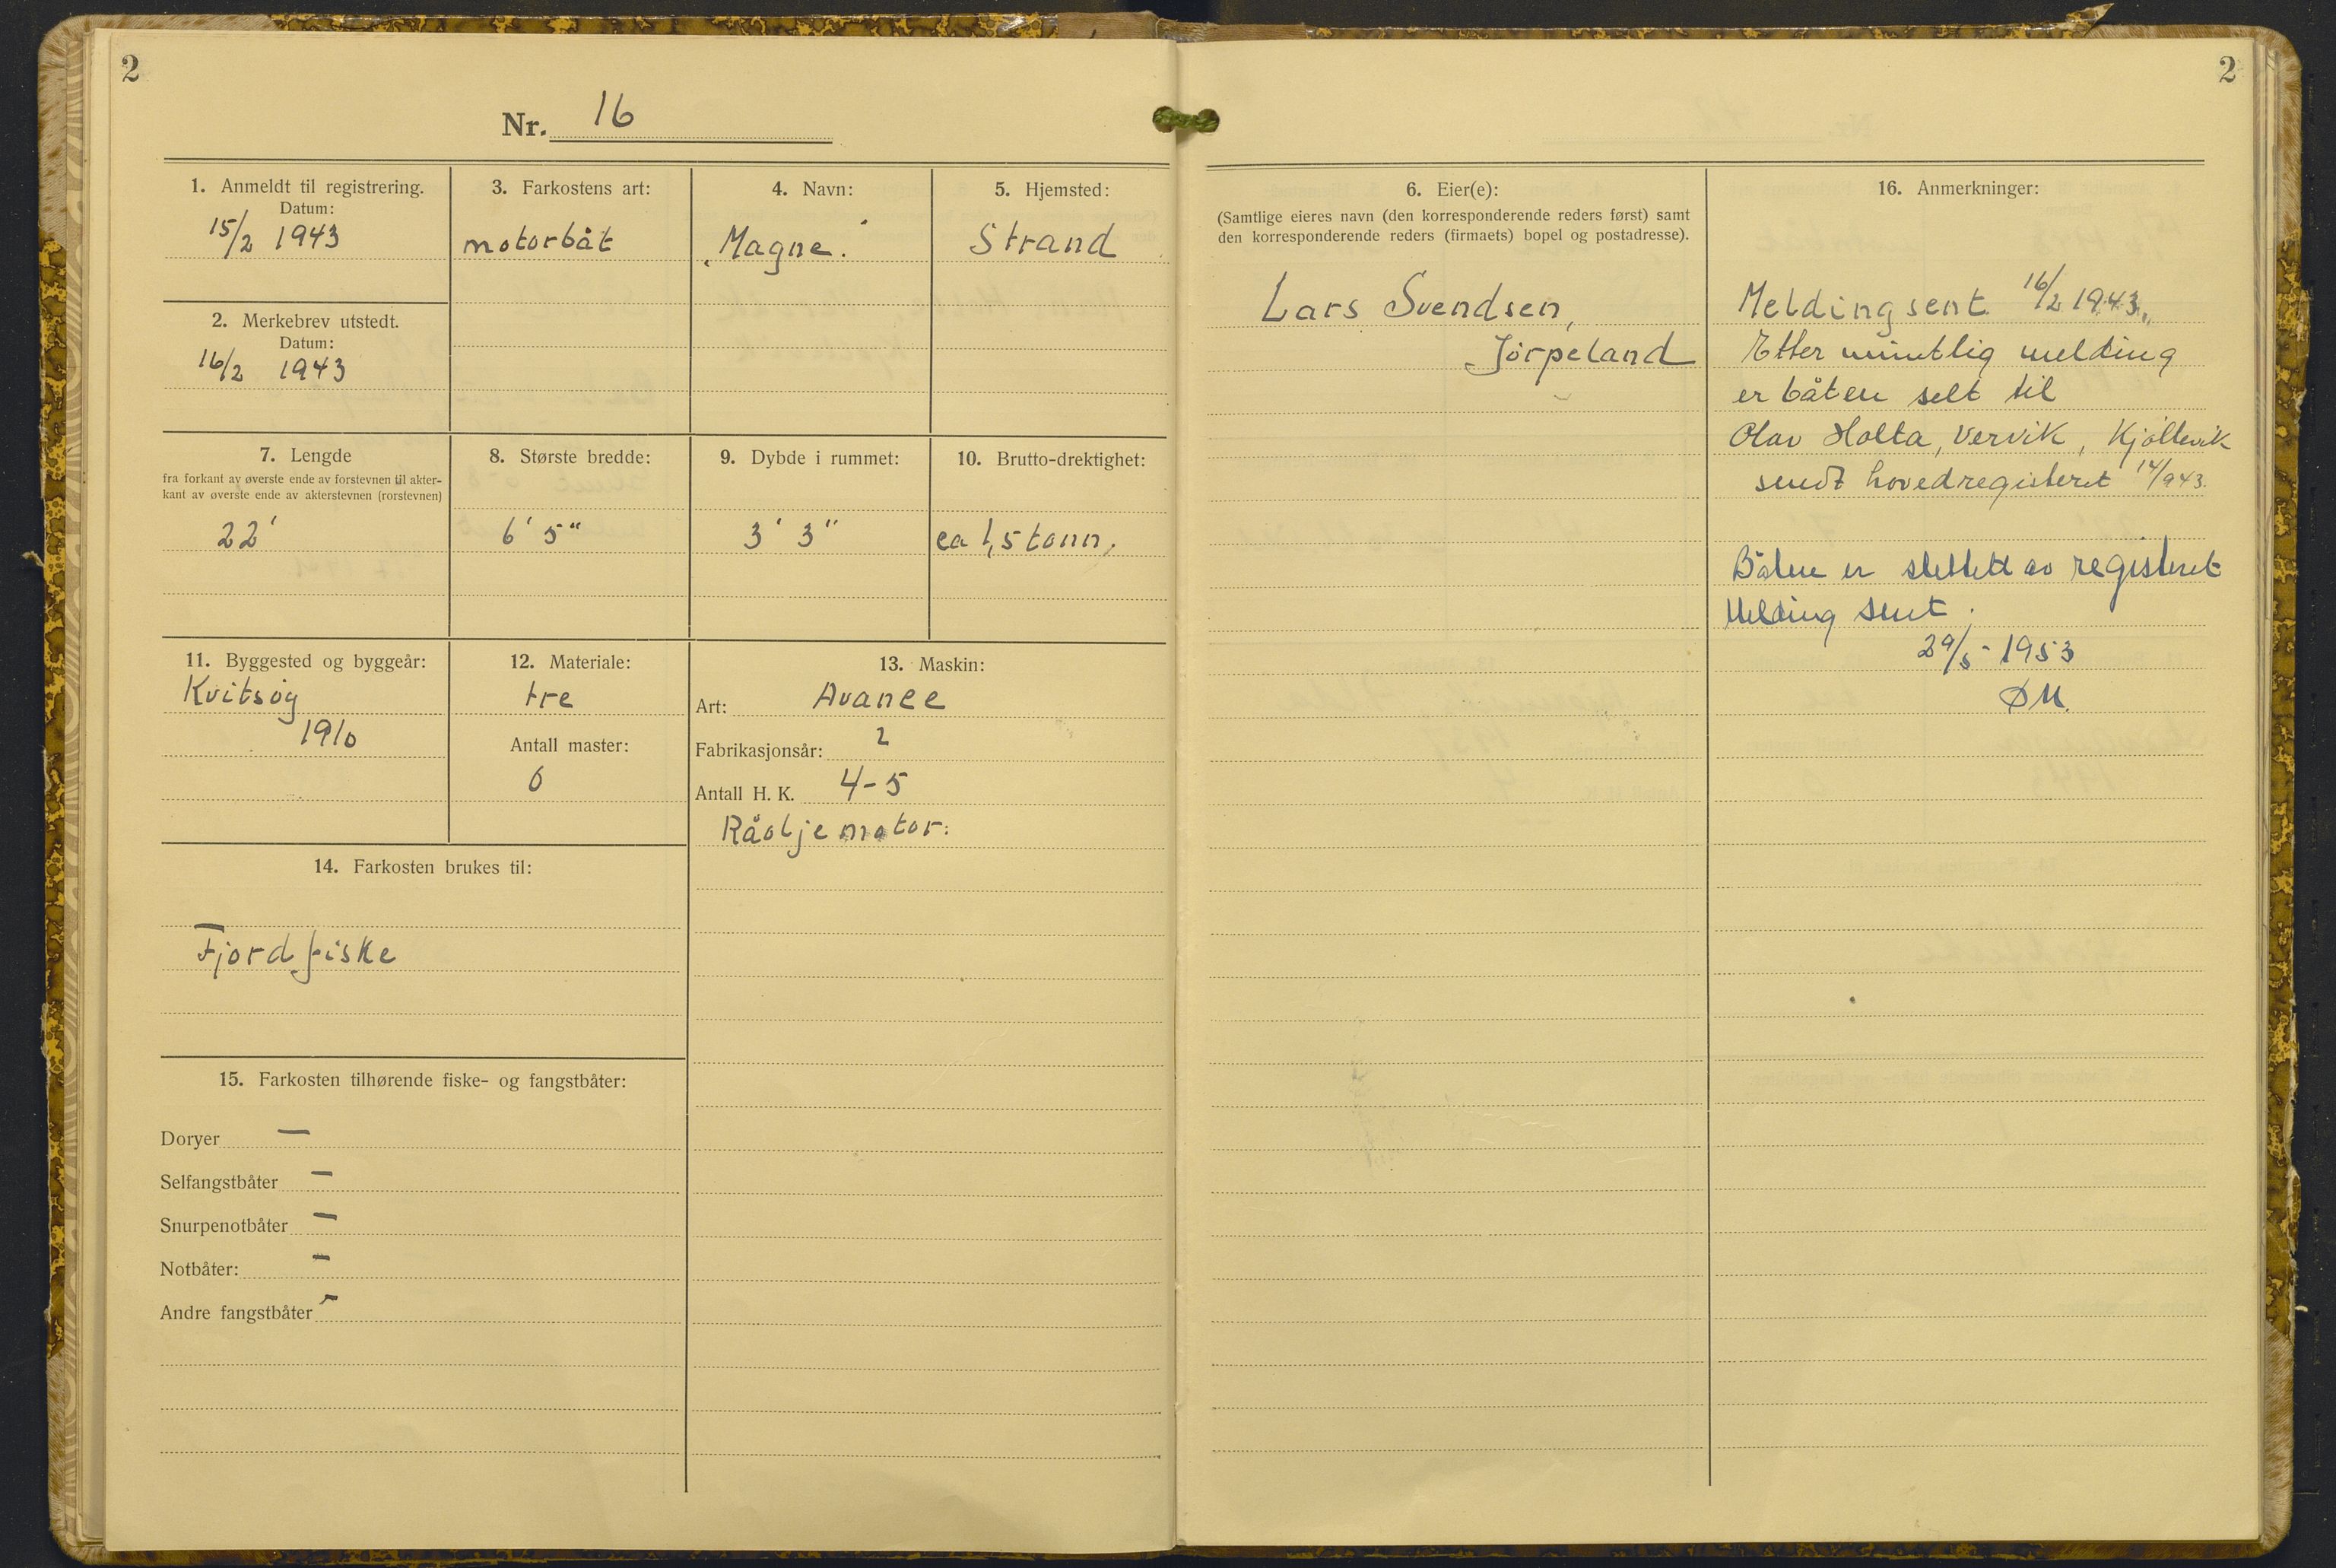 2
Nr. 16
1. Anmeldt til registrering.
Datum:
15/2 1943
2. Merkebrev utstedt.
Datum:
16/2 1943
3. Farkostens art:
motorbåt
4. Navn:
„Magne."
5. Hjemsted:
Strand
7. Lengde
fra forkant av øverste ende av forstevnen til akter-
kant av øverste ende av akterstevnen (rorstevnen)
22'
8. Største bredde:
6' 5"
9. Dybde i rummet:
3' 3"
10. Brutto-drektighet:
ca 1,5 tonn.
11. Byggested og byggeår:
Kvitsøy
1910
12. Materiale:
tre
Antall master:
0
13. Maskin:
Art: Avance
Fabrikasjonsår:
Antall H. K. 4-5
Råoljemotor.
14. Farkosten brukes til:
Fjordfiske
15. Farkosten tilhørende fiske- og fangstbåter:
Doryer —
Selfangstbåter —
Snurpenotbåter —
Notbåter: —
Andre fangstbåter -
2
6. Eier(e):
(Samtlige eieres navn (den korresponderende reders først) samt
den korresponderende reders (firmaets) bopel og postadresse).
Lars Svendsen,
Jørpeland
16. Anmerkninger:
Melding sent 16/2 1943.
Etter muntlig melding
er båten selt til
Olav Holta, Vervik, Kjøllevik
sendt hovedregisteret 14/9 43.
Båten er slettet av registeret
Melding sent.
29/5 - 1953
ØM.